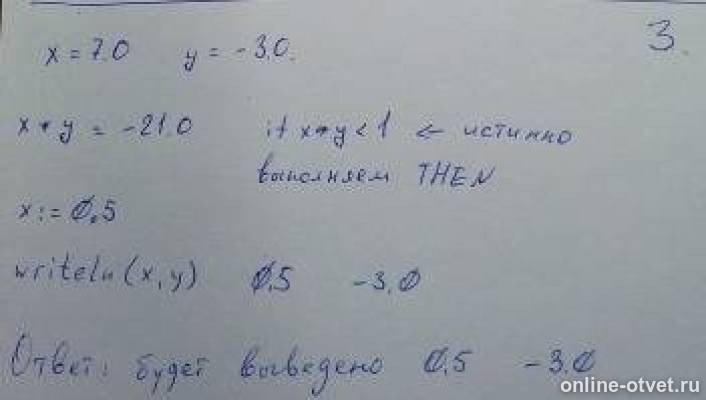 3.
x = 7.0 y = -3.0.
x * y = -21.0 if x*y < 1 ← истинно
выполняем THEN
x := 0.5
writeln(x,y) 0.5 -3.0
Ответ: будет выведено 0.5 -3.0
online-otvet.ru